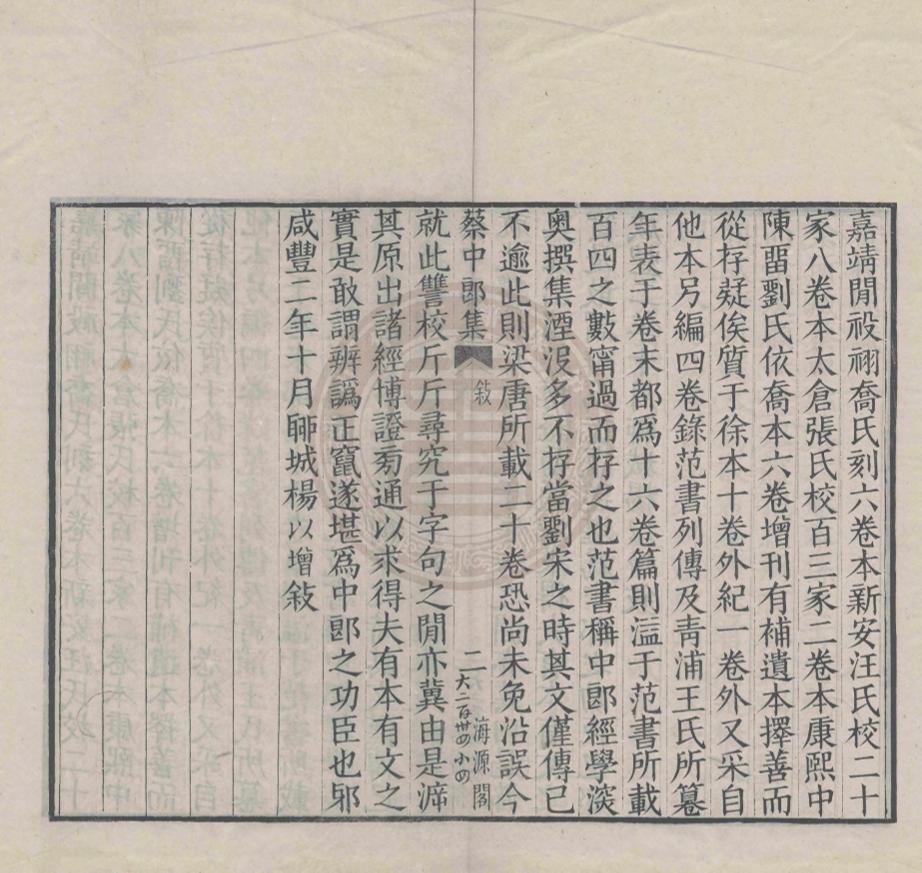 嘉靖閒祋祤喬氏刻六卷本新安汪氏校二十
家八卷本太倉張氏校百三家二卷本康熙中
陳畱劉氏依喬本六卷增刊有補遺本擇善而
從存疑俟質于徐本十卷外紀一卷外又采自
他本另編四卷錄范書列傳及青浦王氏所纂
年表于卷末都爲十六卷篇則溢于范書所載
百四之數甯過而存之也范書稱中郎經學淡
奧撰集湮沒多不存當劉宋之時其文僅傳已
不逾此則梁唐所載二十卷恐尚未免沿誤今
蔡中郎集 敘 二 大二百卌四小四 海源閣
就此讐校斤斤尋究于字句之閒亦冀由是溯
其原出諸經博證旁通以求得夫有本有文之
實是敢謂辨譌正竄遂堪爲中郎之功臣也邪
咸豐二年十月聊城楊以增敘